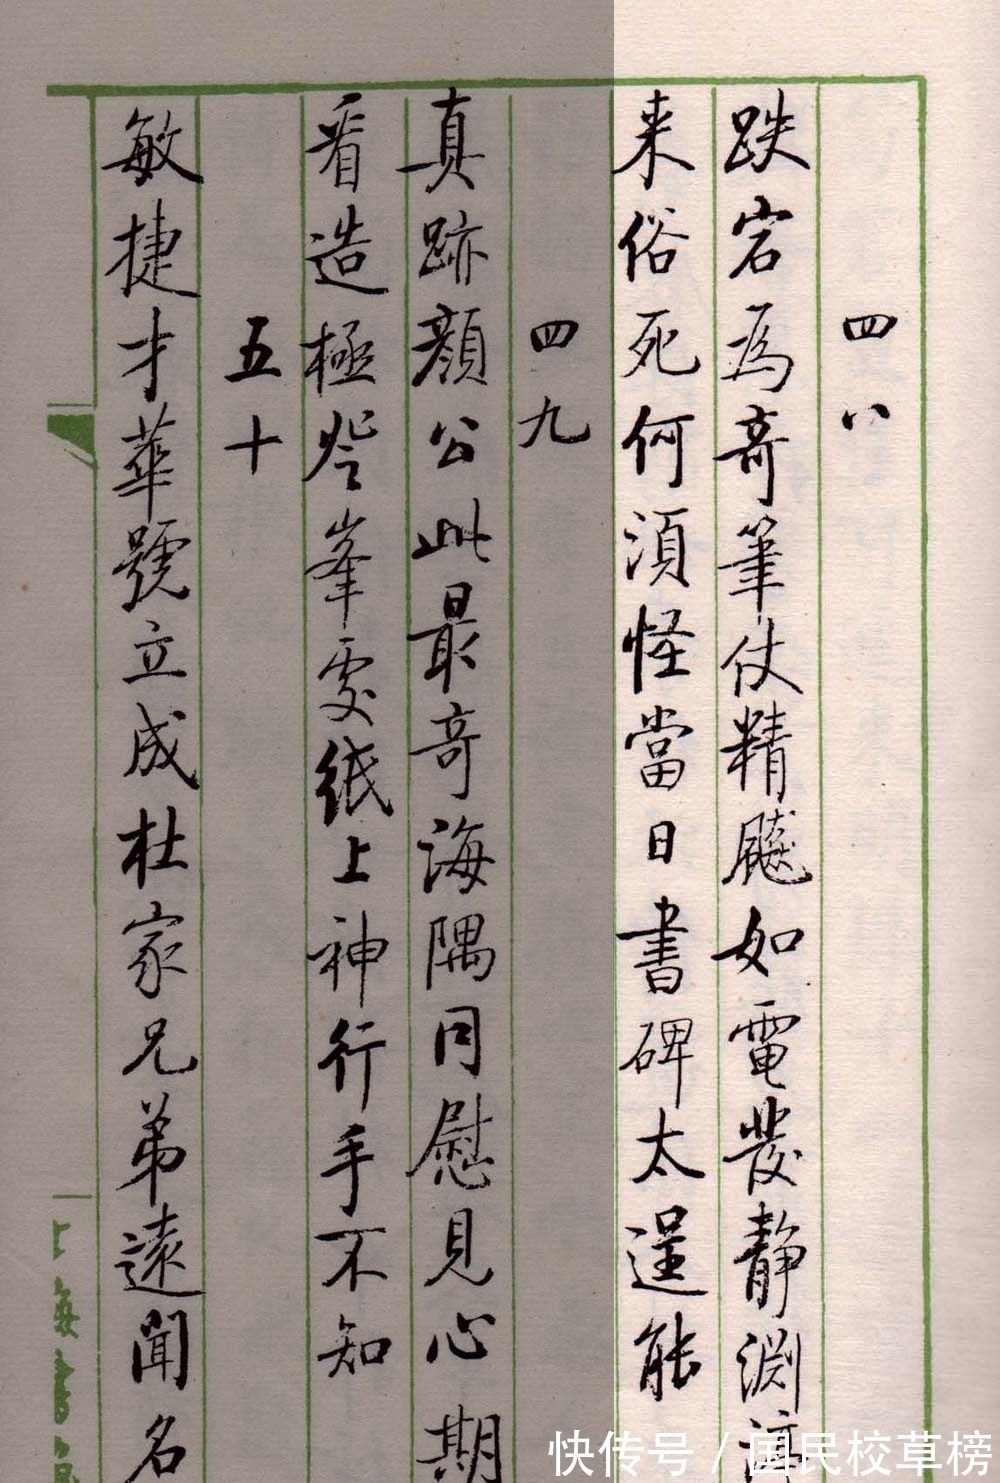 四八
跌宕為奇筆仗精飈如電發靜淵渟
来俗死何須怪當日書碑太逞能
四九
真跡顏公此最奇海隅同慰見心期
看造極登峯處紙上神行手不知
五十
敏捷才華號立成杜家兄弟遠聞名
上海書
快传号 / 国民校草榜